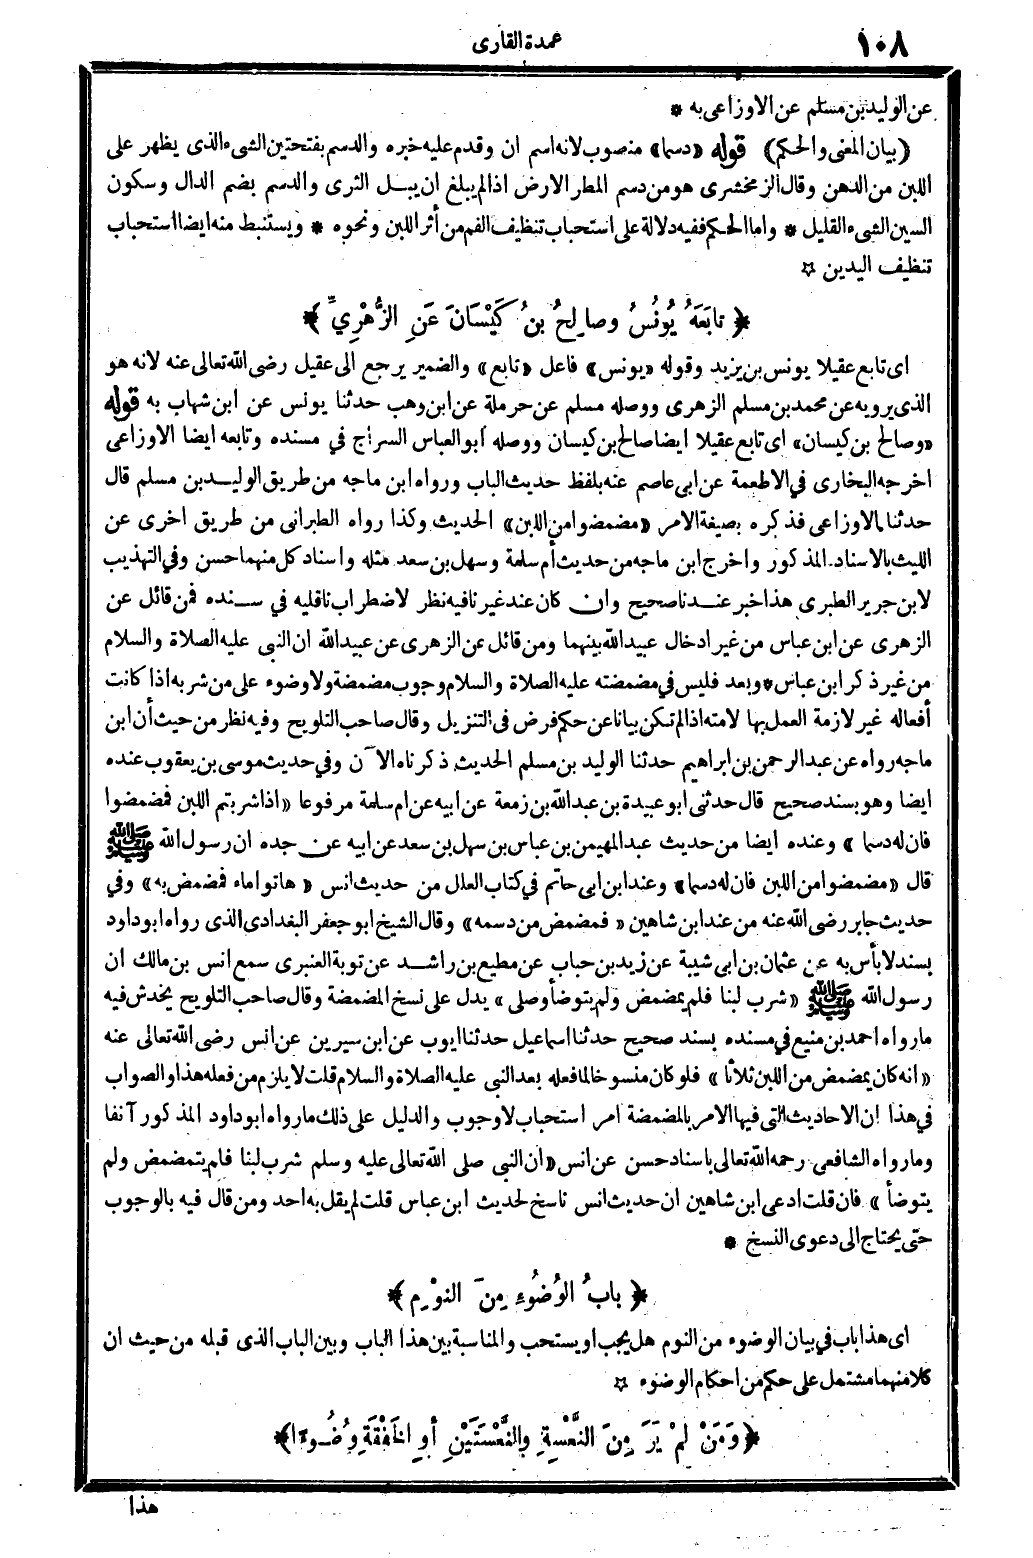 ١٠٨
عمدة القارى
عن الوليد بن مسلم عن الاوزاعى به *
(بيان المعنى والحكم) قوله «دسما» منصوب لانه اسم ان وقدم عليه خبره والدسم بفتحتين الشىء الذى يظهر على
اللبن من الدهن وقال الزمخشرى هو من دسم المطر الارض اذا لم يبلغ ان يبل الثرى والدسم بضم الدال وسكون
السين الشىء القليل * واما الحكم ففيه دلالة على استحباب تنظيف الفم من أثر اللبن ونحوه * ويستنبط منه ايضا استحباب
تنظيف اليدين ☆
﴿ تابَعَهُ يُونُسُ وصالِحُ بنُ كَيْسَانَ عَنِ الزُّهْرِيِّ ﴾
اى تابع عقيلا يونس بن يزيد وقوله «يونس» فاعل «تابع» والضمير يرجع الى عقيل رضى الله تعالى عنه لانه هو
الذى يرويه عن محمد بن مسلم الزهرى ووصله مسلم عن حرملة عن ابن وهب حدثنا يونس عن ابن شهاب به قوله
«وصالح بن كيسان» اى تابع عقيلا ايضا صالح بن كيسان ووصله ابو العباس السراج في مسنده وتابعه ايضا الاوزاعى
اخرجه البخارى في الاطعمة عن ابى عاصم عنه بلفظ حديث الباب ورواه ابن ماجه من طريق الوليد بن مسلم قال
حدثنا الاوزاعى فذكره بصيغة الامر «مضمضوا من اللبن» الحديث وكذا رواه الطبرانى من طريق اخرى عن
الليث بالاسناد المذكور واخرج ابن ماجه من حديث أم سلمة وسهل بن سعد مثله واسناد كل منهما حسن وفي التهذيب
لابن جرير الطبرى هذا خبر عندنا صحيح وان كان عند غيرنا فيه نظر لاضطراب ناقليه في سنده فمن قائل عن
الزهرى عن ابن عباس من غير ادخال عبيد الله بينهما ومن قائل عن الزهرى عن عبيد الله ان النبى عليه الصلاة والسلام
من غير ذكر ابن عباس * وبعد فليس في مضمضته عليه الصلاة والسلام وجوب مضمضة ولا وضوء على من شربه اذا كانت
أفعاله غير لازمة العمل بها لامته اذا لم تكن بيانا عن حكم فرض فى التنزيل وقال صاحب التلويح وفيه نظر من حيث أن ابن
ماجه رواه عن عبد الرحمن بن ابراهيم حدثنا الوليد بن مسلم الحديث ذكرناه الآن وفي حديث موسى بن يعقوب عنده
ايضا وهو بسند صحيح قال حدثنى ابو عبيدة بن عبد الله بن زمعة عن ابيه عن ام سلمة مرفوعا «اذا شربتم اللبن فمضمضوا
فان له دسما» وعنده ايضا من حديث عبد المهيمن بن عباس بن سهل بن سعد عن ابيه عن جده ان رسول الله ﷺ
قال «مضمضوا من اللبن فان له دسما» وعند ابن ابى حاتم في كتاب العلل من حديث انس «هاتوا ماء فمضمض به» وفي
حديث جابر رضى الله عنه من عند ابن شاهين «فمضمض من دسمه» وقال الشيخ ابو جعفر البغدادى الذى رواه ابو داود
بسند لا بأس به عن عثمان بن ابى شيبة عن زيد بن حباب عن مطيع بن راشد عن توبة العنبرى سمع انس بن مالك ان
رسول الله ﷺ «شرب لبنا فلم يمضمض ولم يتوضأ وصلى» يدل على نسخ المضمضة وقال صاحب التلويح يخدش فيه
ما رواه احمد بن منيع في مسنده بسند صحيح حدثنا اسماعيل حدثنا ايوب عن ابن سيرين عن انس رضى الله تعالى عنه
«انه كان يمضمض من اللبن ثلاثا» فلو كان منسوخا لما فعله بعد النبى عليه الصلاة والسلام قلت لا يلزم من فعله هذا والصواب
في هذا ان الاحاديث التى فيها الامر بالمضمضة امر استحباب لا وجوب والدليل على ذلك ما رواه ابو داود المذكور آنفا
وما رواه الشافعى رحمه الله تعالى باسناد حسن عن انس «ان النبى صلى الله تعالى عليه وسلم شرب لبنا فلم يتمضمض ولم
يتوضأ» فان قلت ادعى ابن شاهين ان حديث انس ناسخ لحديث ابن عباس قلت لم يقل به احد ومن قال فيه بالوجوب
حتى يحتاج الى دعوى النسخ *
﴿ بابُ الوُضُوءِ مِنَ النوْمِ ﴾
اى هذا باب في بيان الوضوء من النوم هل يجب او يستحب والمناسبة بين هذا الباب وبين الباب الذى قبله من حيث ان
كلا منهما مشتمل على حكم من احكام الوضوء ☆
﴿ وَمَنْ لَمْ يَرَ مِنَ النَّعْسَةِ والنَّعْسَتَيْنِ أوِ الخَفْقَةِ وُضُوءًا ﴾
هذا